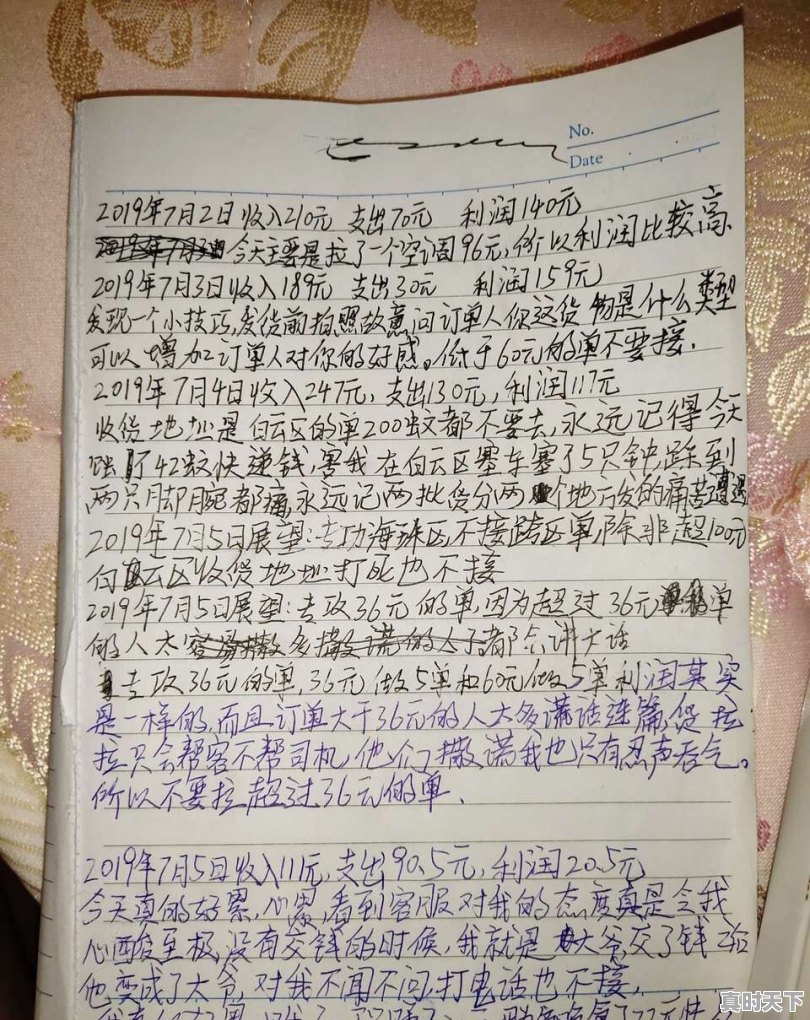 No.
Date
2019年7月2日收入210元 支出70元 利润140元
今天主要是拉了一个空调96元,所以利润比较高.
2019年7月3日收入189元 支出30元 利润159元
发现一个小技巧,发货前拍照故意问订单人你这货物是什么类型
可以增加订单人对你的好感。低于60元的单不要接.
2019年7月4日收入247元,支出130元,利润117元
收货地址是白云区的单200蚊都不要去,永远记得今天
蚀了42蚊快递钱,害我在白云区塞车塞了5只钟,踩到
两只脚腕都痛,永远记两批货分两个地方发的痛苦
2019年7月5日展望:专攻海珠区,不接跨区单,除非超100元
白云区收货地址打死也不接
2019年7月5日展望:专攻36元的单,因为超过36元单
的人太多撒谎的人了都会讲大话
专攻36元的单,36元做5单和60元做5单利润其实
是一样的,而且订单大于36元的人太多谎话连篇,货拉
拉只会帮客不帮司机,他们撒谎我也只有忍声吞气。
所以不要拉超过36元的单.
2019年7月5日收入111元,支出90.5元,利润20.5元
今天真的好累,心累,看到客服对我的态度真是令我
心酸至极,没有交钱的时候,我就是大爷,交了钱给
他变成了大爷,对我不闻不问,打电话也不接,
真时天下